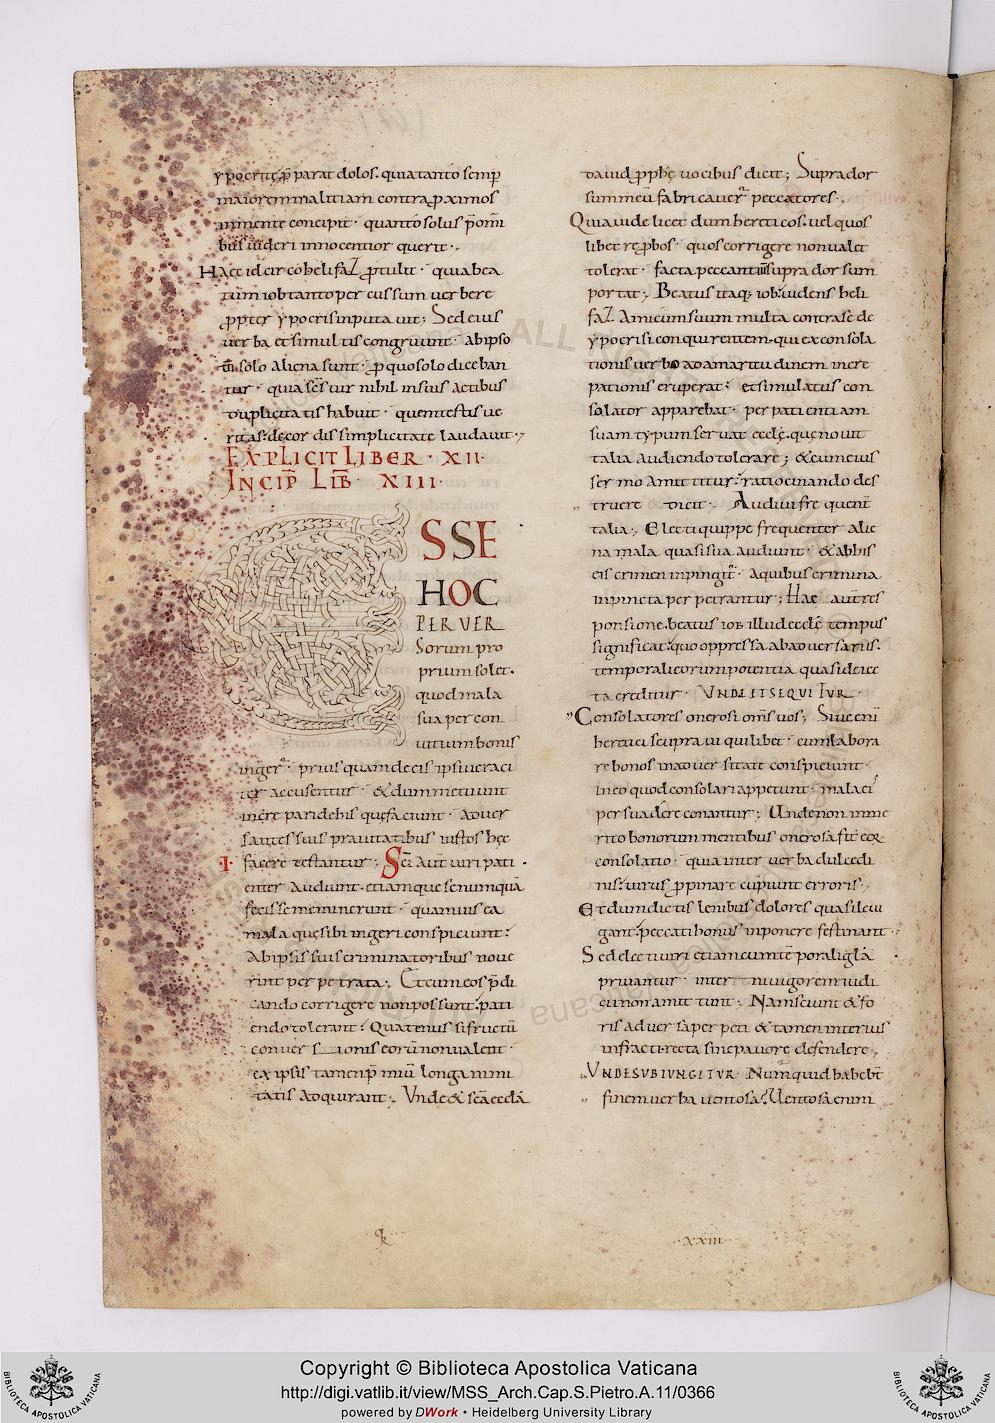 ypocritę p̄ parat dolos. qui a tanto semp̄
maiorem malitiam contra proximos
in mente concipit· quanto solus p̄ om̄i
bus uideri innocentior querit·,
Haec idcirco heli faz ꝓtulit· quia bea
tum iob tanto percussum uerbere
ꝓpter ypocrisin putauit; Sed eius
uerba et si multis congruunt· ab ipso
solo aliena sunt· ꝓ quo solo diceban
tur· quia sc̄s uir nihil in suis actibus
duplicitatis habuit· quem testis ue
ritas· de cordis simplicitate laudauit·,
EXPLICIT LIBER· XII·
INCIP̄ LIB̄· XIII·
ESSE
HOC
PERVER
Sorum pro
prium solet·
quod mala
sua per con
uitium bonis
inger̄· prius quam de eis ipsi ueraci
ter accusentur· & dum metuunt
increpari de his quę faciunt· aduer
santes suis prauitatibus iustos hęc
I· facere testantur·, Sc̄i aut̄ uiri pati
enter audiunt· etiam que se numquā
fecisse meminerunt· quamuis ea
mala quę sibi ingeri conspiciunt·
ab ipsis suis criminatoribus noue
rint perpetrata·, Et cum eos p̄di
cando corrigere non possunt· pati
endo tolerant· Quatenus si fructū
conuersionis eorū non ualent·
ex ipsis tamen p̄miū longanimi
tatis adquirant·, Vnde & sc̄a ecclā
dauid ꝓphę uocibus dicit; Supra dor
sum meū fabricauer̄ peccatores·,
Quia uidelicet dum hereticos· uel quos
libet reꝓbos· quos corrigere non ualet
tolerat· facta peccantiū supra dorsum
portat·, Beatus itaq; iob· uidens heli
faz amicum suum multa contra se de
ypocrisi conquirentem· qui ex consola
tionis uerbo ad amaritudinem incre
pationis eruperat· et simulatus con
solator apparebat· per patientiam
suam typum seruat eccl̄ę· quę nouit
talia audiendo tolerare; & cum eius
sermo amittitur· ratiocinando des
truere· dicit· Audiui frequent̄
talia·, Electi quippe frequenter alie
na mala quasi sua audiunt· & ab his
eis crimen inpingit̄· a quibus crimina
inpincta perpetrantur; Hac aut̄ res
ponsione· beatus iob illud eccl̄ę tempus
significat· quo oppressa ab aduersariis·
temporali eorum potentia quasi deiec
ta creditur· VNDE ET SEQUITUR·
Consolatores onerosi om̄s uos; Siue enī
heretici seu praui quilibet· cum labora
re bonos in aduersitate conspiciunt·
in eo quod consolari appetunt· mala ei
persuadere conantur; Unde non imme
rito bonorum mentibus onerosa fit eoꝝ
consolatio· quia inter uerba dulcedi
nis· uirus ꝓpinare cupiunt erroris·,
Et dum dictis lenibus dolores quasi leui
gant· peccati honus inponere festinant·,
Sed electi uiri etiam cum tēporali glā
priuantur· interni uigorem iudi
cii non amittunt·, Nam sciunt & fo
ris aduersa perpeti & tamen interius
infracti· recta sine pauore defendere·,
VNDE SUBIUNGITUR· Numquid habebt̄
finem uerba uentosa? Uentosa enim
·xxiii·
Copyright © Biblioteca Apostolica Vaticana
http://digi.vatlib.it/view/MSS_Arch.Cap.S.Pietro.A.11/0366
powered by DWork • Heidelberg University Library
BIBLIOTECA APOSTOLICA VATICANA
BIBLIOTECA APOSTOLICA VATICANA